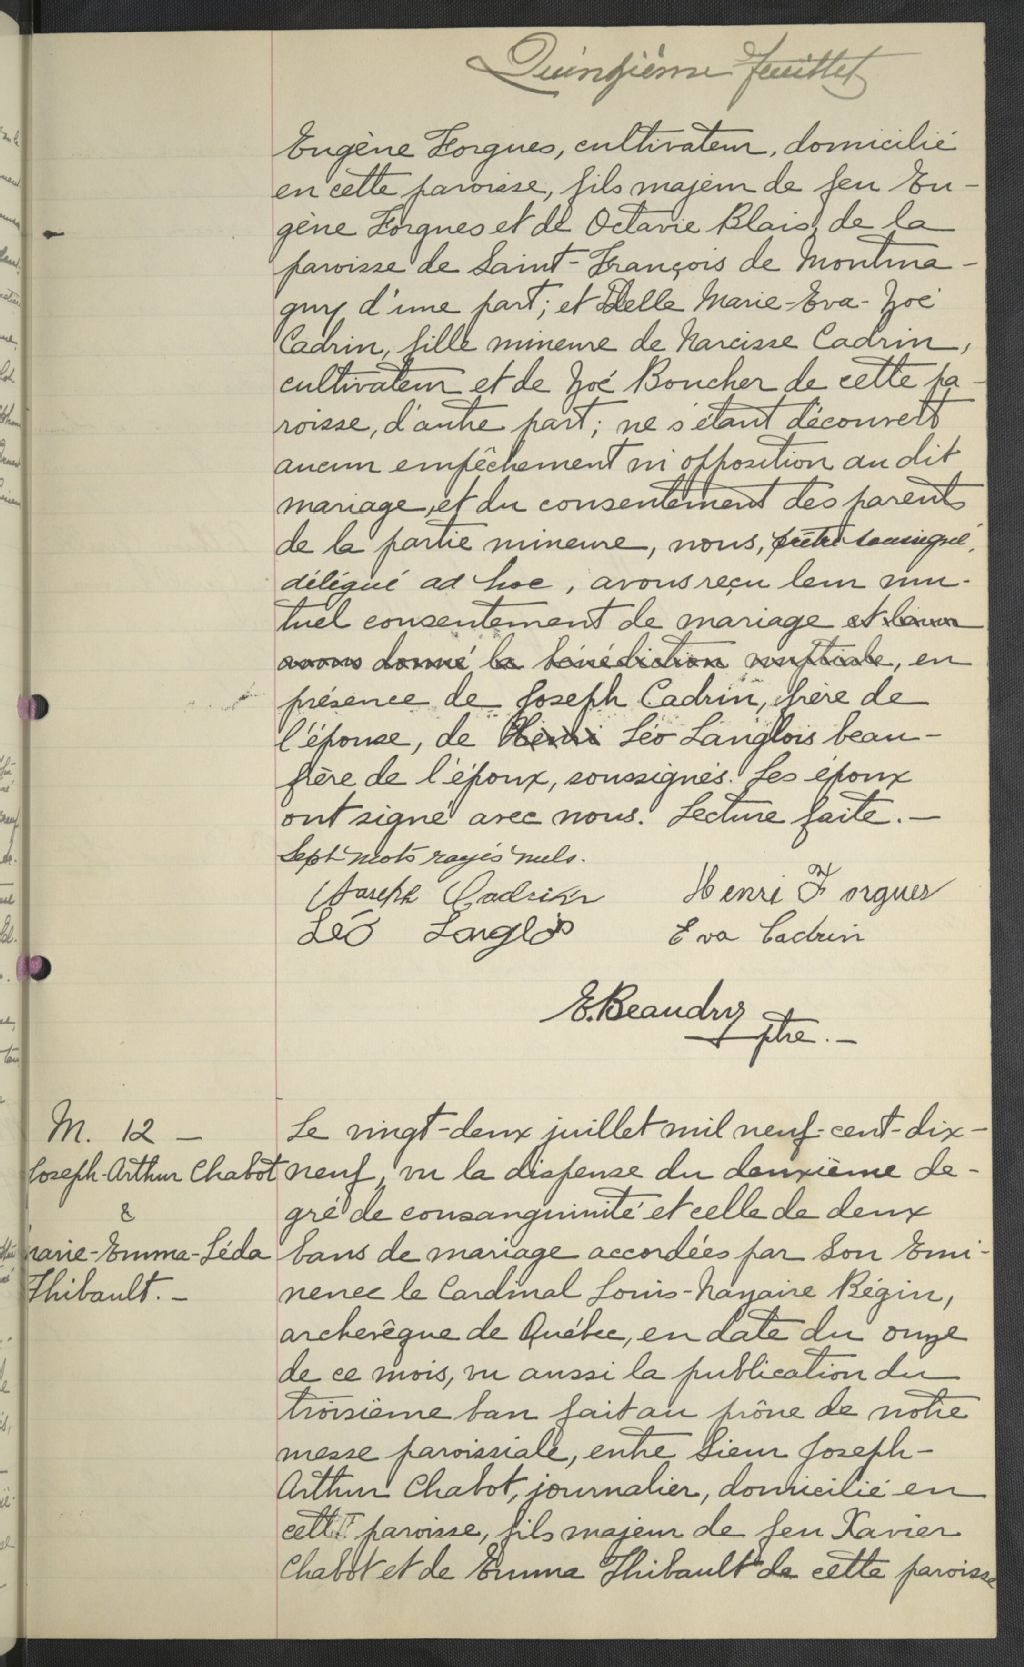 Quinzième feuillet
Eugène Forgues, cultivateur, domicilié
en cette paroisse, fils majeur de feu Eu-
gène Forgues et de Octavie Blais, de la
paroisse de Saint-François de Montma-
gny d'une part; et Delle Marie-Eva-Zoé
Cadrin, fille mineure de Narcisse Cadrin,
cultivateur et de Zoé Boucher de cette pa-
roisse, d'autre part; ne s'étant découvert
aucun empêchement ni opposition au dit
mariage, et du consentement des parents
de la partie mineure, nous, prêtre soussigné,
délégué ad hoc, avons reçu leur mu-
tuel consentement de mariage et leur
avons donné la bénédiction nuptiale, en
présence de Joseph Cadrin, frère de
l'épouse, de Henri Léo Langlois beau-
frère de l'époux, soussignés. Les époux
ont signé avec nous. Lecture faite.—
Sept mots rayés nuls.
Joseph Cadrin Henri Forgues
Léo Langlois Eva Cadrin
E. Beaudry
ptre.—
M. 12 —
Joseph-Arthur Chabot
&
Marie-Emma-Léda
Thibault.—
Le vingt-deux juillet mil neuf-cent-dix-
neuf, vu la dispense du deuxième de-
gré de consanguinité et celle de deux
bans de mariage accordées par Son Emi-
nence le Cardinal Louis-Nazaire Bégin,
archevêque de Québec, en date du onze
de ce mois, vu aussi la publication du
troisième ban fait au prône de notre
messe paroissiale, entre Sieur Joseph-
Arthur Chabot, journalier, domicilié en
cette paroisse, fils majeur de feu Xavier
Chabot et de Emma Thibault de cette paroisse